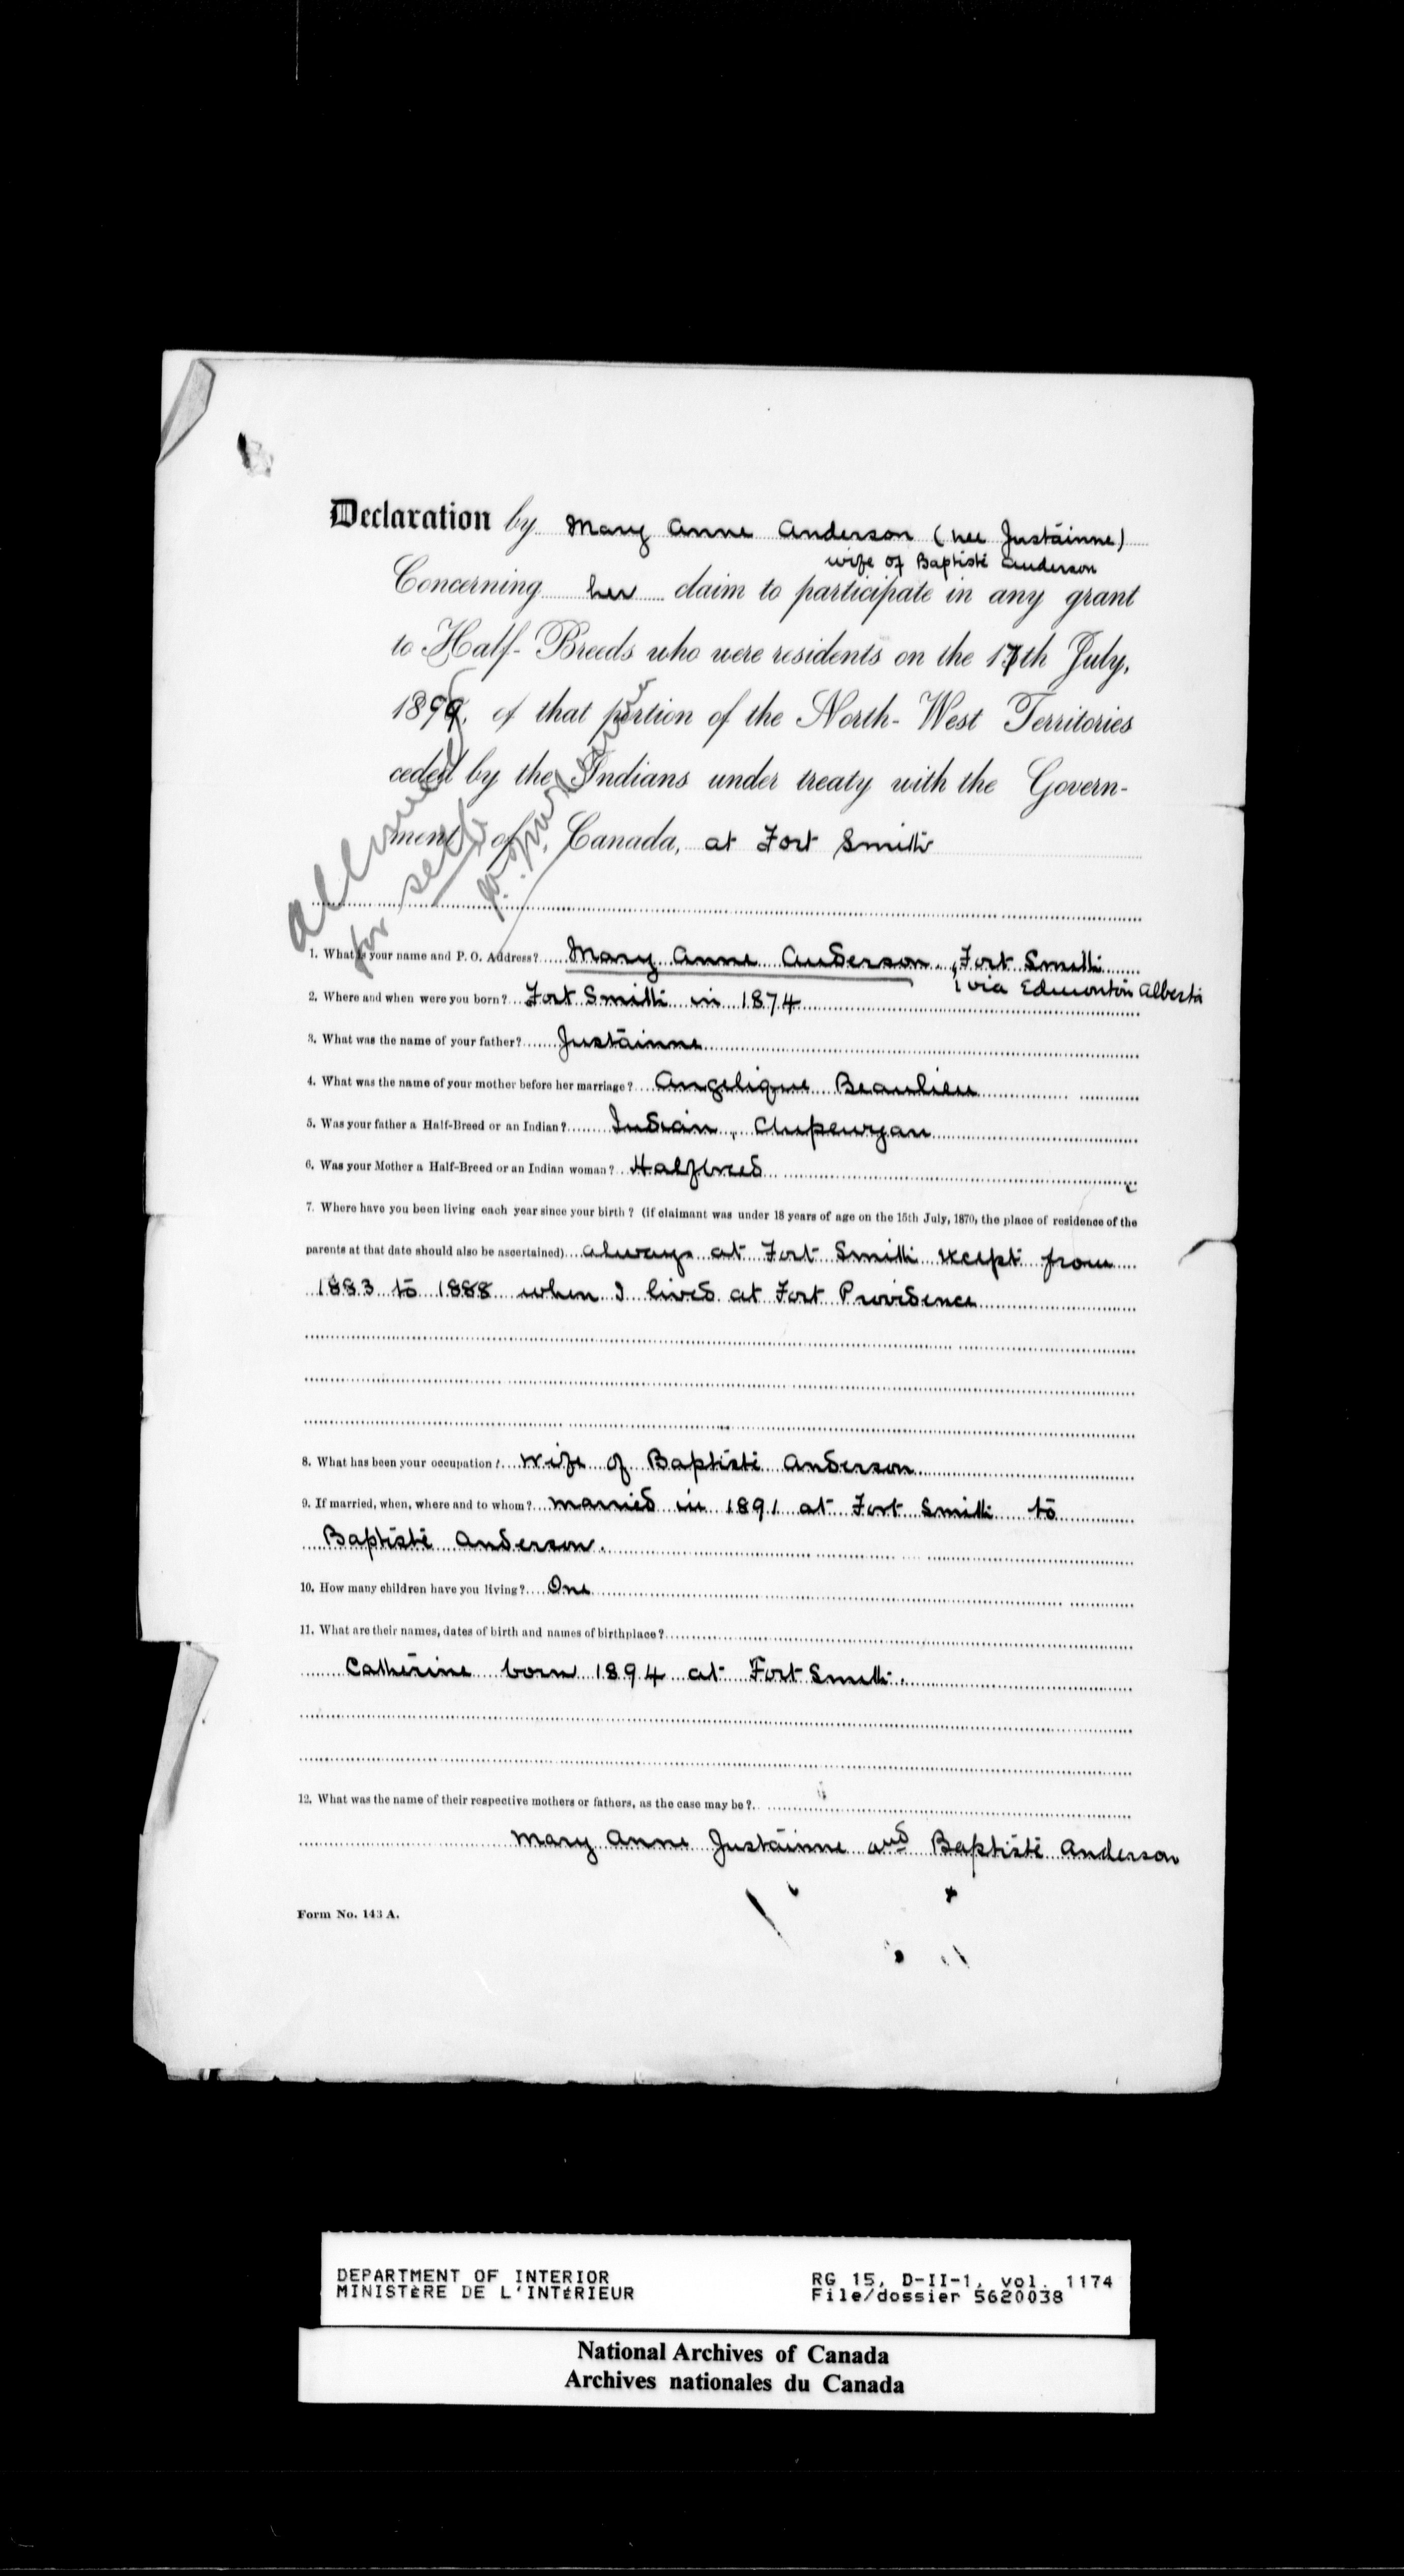 Declaration by Mary Anne Anderson (nee Justáinne)
wife of Baptiste Anderson
Concerning her claim to participate in any grant
to Half-Breeds who were residents on the 17th July,
1899, of that portion of the North-West Territories
ceded by the Indians under treaty with the Govern-
ment of Canada, at Fort Smith
Allowed
for self
1. What is your name and P. O. Address? Mary Anne Anderson, Fort Smith
via Edmonton Alberta
2. Where and when were you born? Fort Smith in 1874
3. What was the name of your father? Justáinne
4. What was the name of your mother before her marriage? Angelique Beaulieu
5. Was your father a Half-Breed or an Indian? Indian, Chipewyan
6. Was your Mother a Half-Breed or an Indian woman? Halfbreed
7. Where have you been living each year since your birth? (if claimant was under 18 years of age on the 15th July, 1870, the place of residence of the
parents at that date should also be ascertained) always at Fort Smith except from
1883 to 1888 when I lived at Fort Providence
8. What has been your occupation? Wife of Baptiste Anderson
9. If married, when, where and to whom? married in 1891 at Fort Smith to
Baptiste Anderson.
10. How many children have you living? One
11. What are their names, dates of birth and names of birthplace?
Catherine born 1894 at Fort Smith.
12. What was the name of their respective mothers or fathers, as the case may be?
Mary Anne Justáinne and Baptiste Anderson
Form No. 143 A.
DEPARTMENT OF INTERIOR
MINISTÈRE DE L'INTÉRIEUR
RG 15, D-II-1, vol. 1174
File/dossier 5620038
National Archives of Canada
Archives nationales du Canada